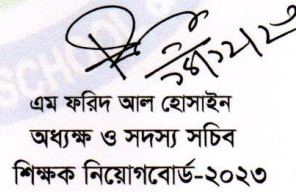 এম ফরিদ আল হোসাইন
অধ্যক্ষ ও সদস্য সচিব
শিক্ষক নিয়োগবোর্ড-২০২৩